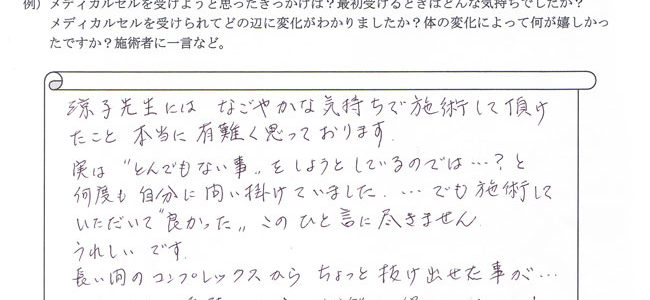 例）メディカルセルを受けようと思ったきっかけは？最初受けるときはどんな気持ちでしたか？
メディカルセルを受けられてどの辺に変化がわかりましたか？体の変化によって何が嬉しかっ
たですか？施術者に一言など。
涼子先生には なごやかな気持ちで施術して頂け
たこと 本当に 有難く思っております。
実は "とんでもない事" をしようとしているのでは…？と
何度も 自分に 問い掛けていました. … でも 施術して
いただいて "良かった" このひと言に尽きません
うれしい です.
長い間の コンプレックスから ちょっと 抜け出せた事が…